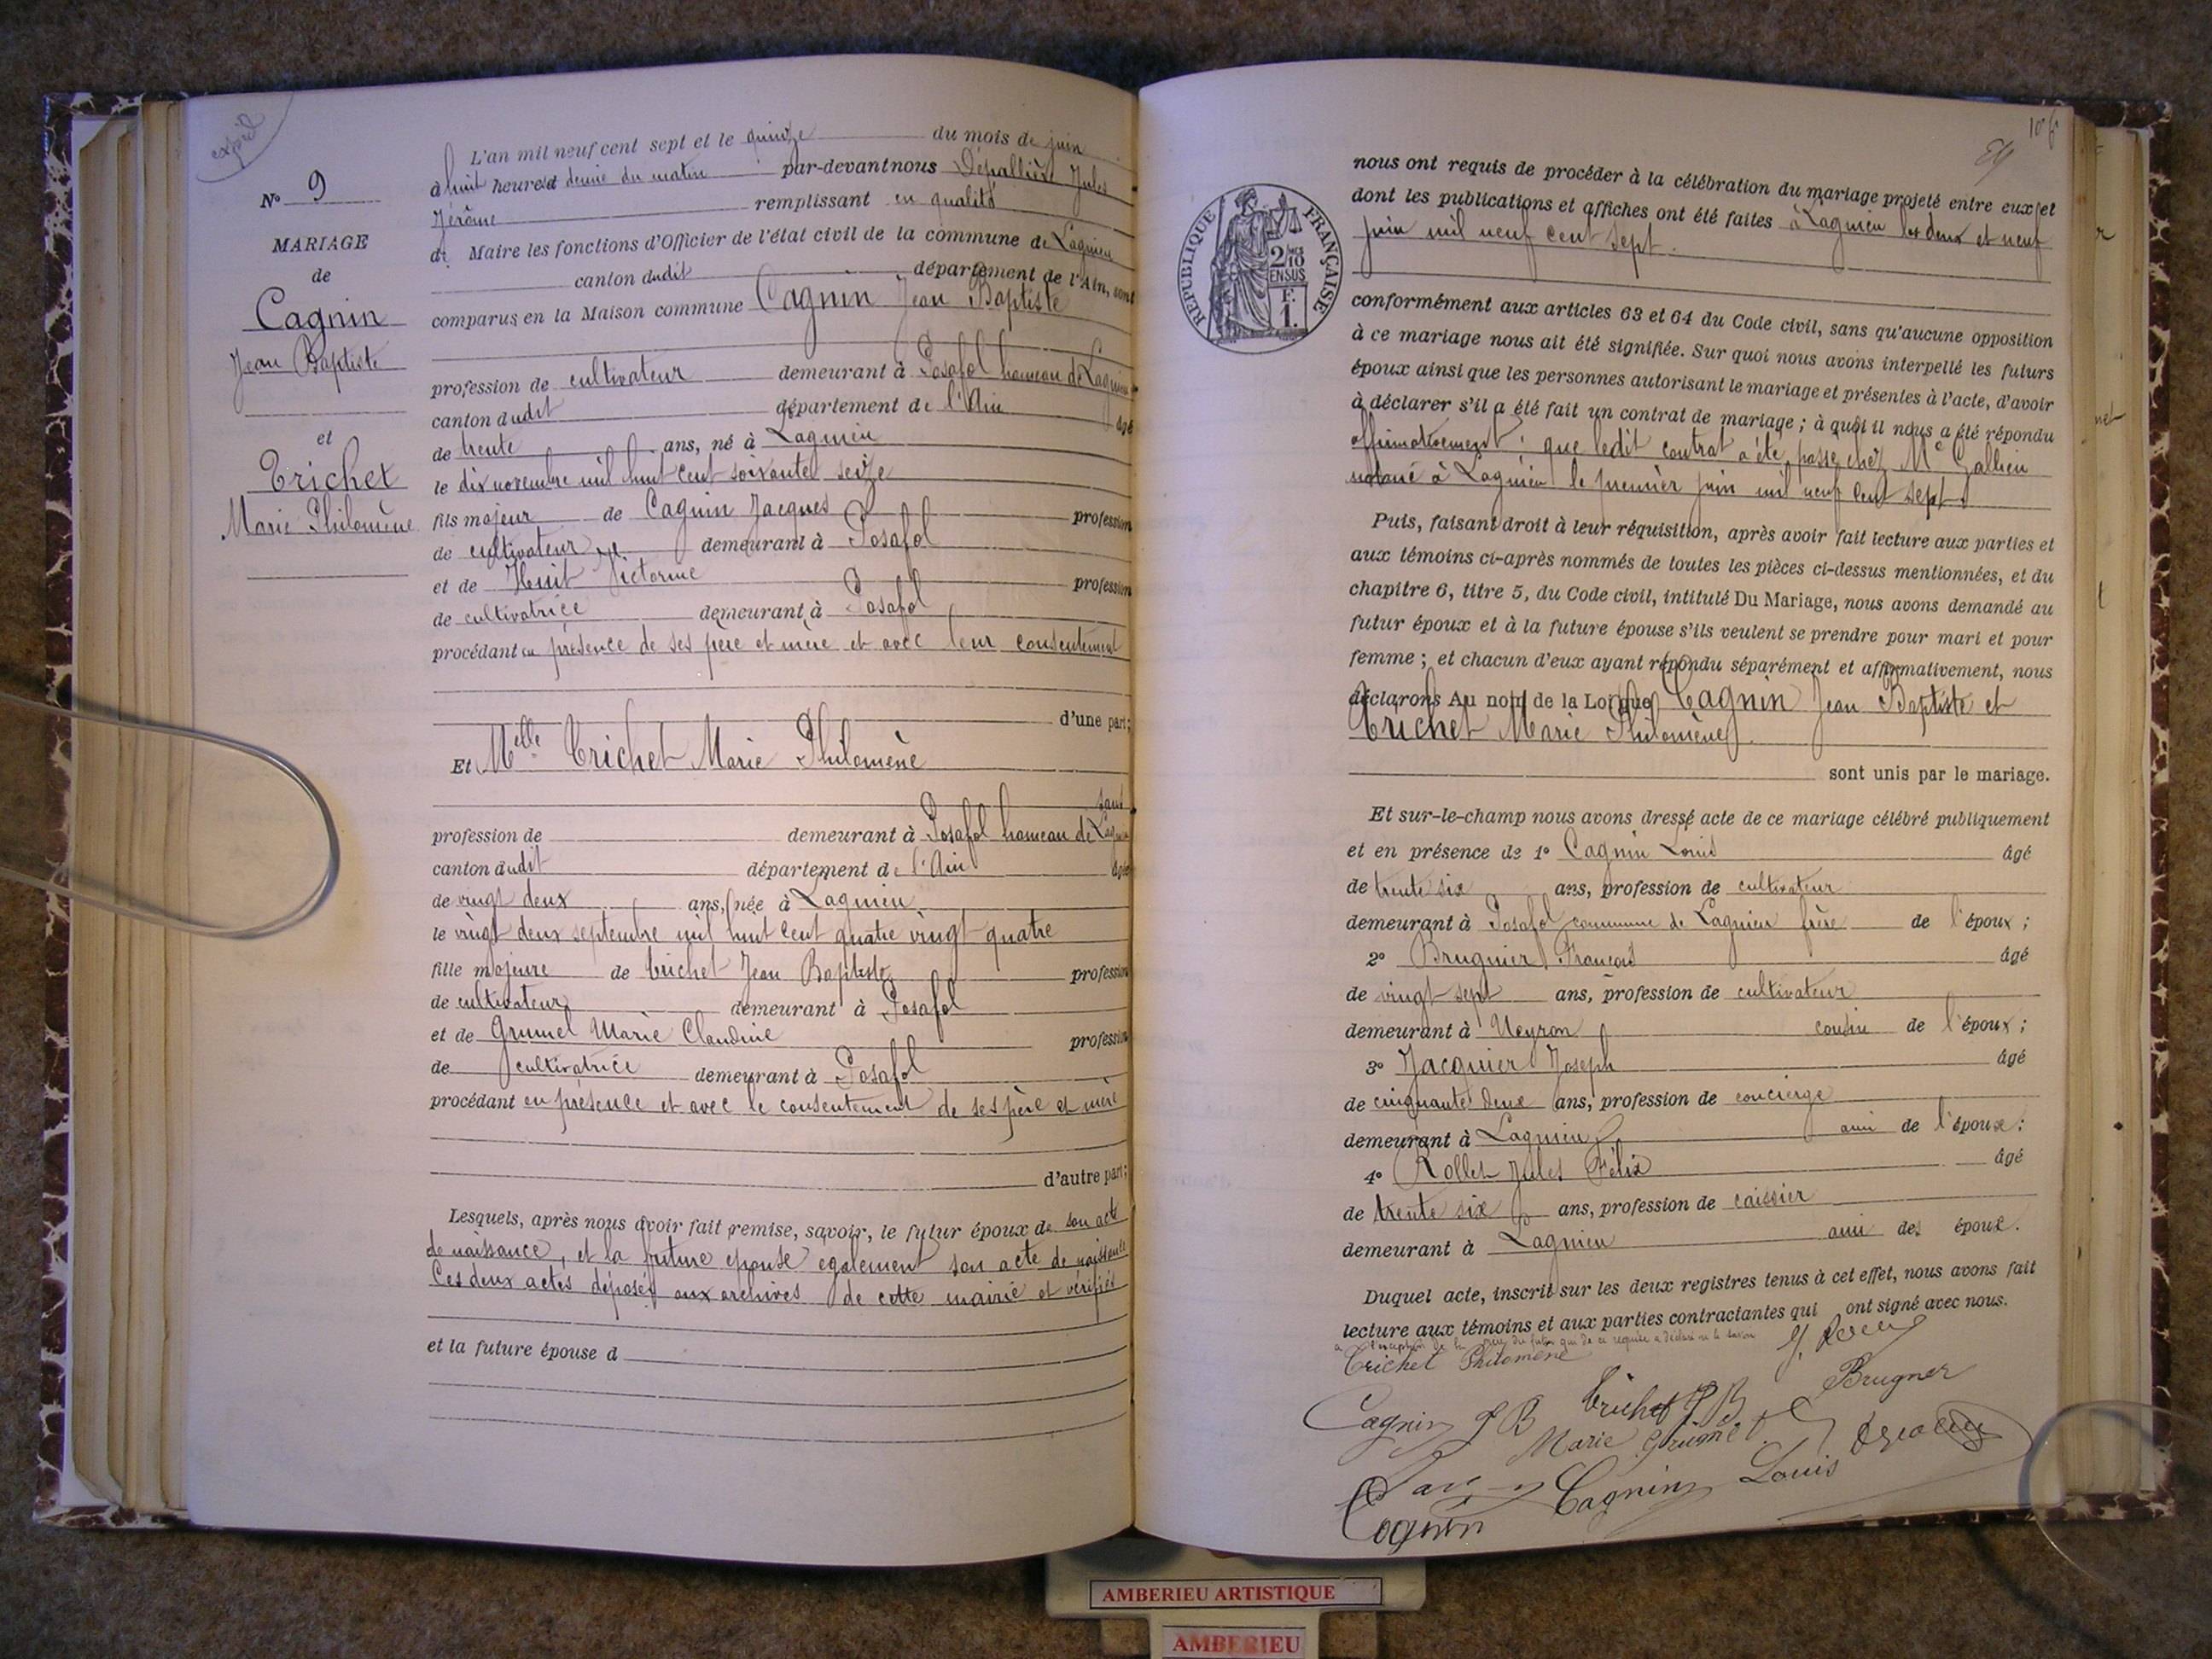 expéd
N° 9
MARIAGE
de
Cagnin
Jean Baptiste
et
Trichet
Marie Philomène
L'an mil neuf cent sept et le quinze du mois de juin
à huit heures et demie du matin par-devant nous Dépallière Jules
Jérôme remplissant en qualité
de Maire les fonctions d'Officier de l'état civil de la commune de Lagnieu
canton dudit département de l'Ain, sont
comparus en la Maison commune Cagnin Jean Baptiste
profession de cultivateur demeurant à Posafol hameau de Lagnieu
canton dudit département de l'Ain âgé
de trente ans, né à Lagnieu
le dix novembre mil huit cent soixante seize
fils majeur de Cagnin Jacques profession
de cultivateur demeurant à Posafol
et de Huit Victorine profession
de cultivatrice demeurant à Posafol
procédant en présence de ses père et mère et avec leur consentement
d'une part;
Et Melle Trichet Marie Philomène
sans
profession de demeurant à Posafol hameau de Lagnieu
canton dudit département de l'Ain âgée
de vingt deux ans, née à Lagnieu
le vingt deux septembre mil huit cent quatre vingt quatre
fille majeure de Trichet Jean Baptiste profession
de cultivateur demeurant à Posafol
et de Grumel Marie Claudine profession
de cultivatrice demeurant à Posafol
procédant en présence et avec le consentement de ses père et mère
d'autre part;
Lesquels, après nous avoir fait remise, savoir, le futur époux de son acte
de naissance, et la future épouse également son acte de naissance
Ces deux actes déposés aux archives de cette mairie et vérifiés
et la future épouse d
106
84
RÉPUBLIQUE FRANÇAISE
2/10
EN SUS
F.
1.
nous ont requis de procéder à la célébration du mariage projeté entre eux et
dont les publications et affiches ont été faites à Lagnieu les deux et neuf
juin mil neuf cent sept.
conformément aux articles 63 et 64 du Code civil, sans qu'aucune opposition
à ce mariage nous ait été signifiée. Sur quoi nous avons interpellé les futurs
époux ainsi que les personnes autorisant le mariage et présentes à l'acte, d'avoir
à déclarer s'il a été fait un contrat de mariage ; à quoi il nous a été répondu
affirmativement ; que ledit contrat a été passé chez Me Gallien
notaire à Lagnieu le premier juin mil neuf cent sept.
Puis, faisant droit à leur réquisition, après avoir fait lecture aux parties et
aux témoins ci-après nommés de toutes les pièces ci-dessus mentionnées, et du
chapitre 6, titre 5, du Code civil, intitulé Du Mariage, nous avons demandé au
futur époux et à la future épouse s'ils veulent se prendre pour mari et pour
femme ; et chacun d'eux ayant répondu séparément et affirmativement, nous
déclarons Au nom de la Loi que Cagnin Jean Baptiste et
Trichet Marie Philomène
sont unis par le mariage.
Et sur-le-champ nous avons dressé acte de ce mariage célébré publiquement
et en présence de 1° Cagnin Louis âgé
de trente six ans, profession de cultivateur
demeurant à Posafol commune de Lagnieu frère de l'époux ;
2° Brugnier François âgé
de vingt sept ans, profession de cultivateur
demeurant à Neyron cousin de l'époux ;
3° Jacquier Joseph âgé
de cinquante deux ans, profession de concierge
demeurant à Lagnieu ami de l'épouse ;
4° Rollet Jules Félix âgé
de trente six ans, profession de caissier
demeurant à Lagnieu ami des époux.
Duquel acte, inscrit sur les deux registres tenus à cet effet, nous avons fait
lecture aux témoins et aux parties contractantes qui ont signé avec nous.
à l'exception de la mère du futur qui de ce requise a déclaré ne le savoir
Trichet Philomène
Brugner
Cagnin J B Trichet J B
Marie Grumel
Cagnin Louis
Cagnin
AMBERIEU ARTISTIQUE
AMBERIEU